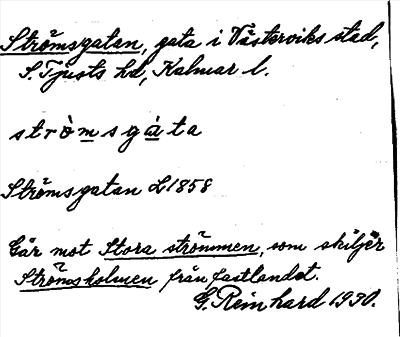 Strömsgatan, gata i Västerviks stad,
S. Tjusts hd, Kalmar l.
strò̀msgàta
Strömsgatan L 1858
Går mot Stora strömmen, som skiljer
Strömsholmen från fastlandet.
G. Reinhard 1930.